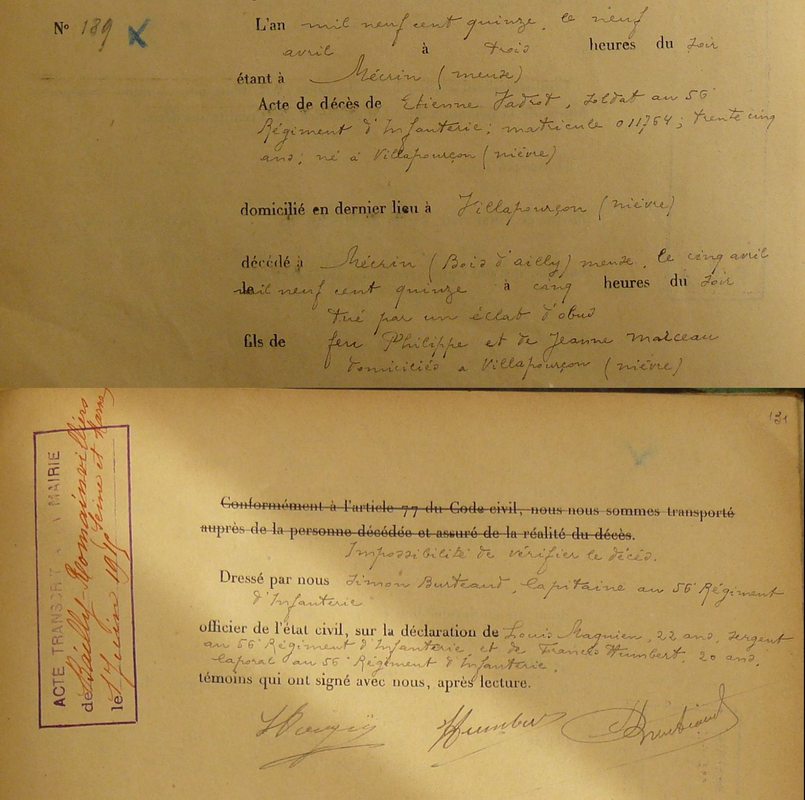 Nº 189 X
L'an mil neuf cent quinze, le neuf
avril à trois heures du soir
étant à Mécrin (meuse)
Acte de décès de Etienne Jadrot, soldat au 56
Régiment d'Infanterie; matricule 011764; trente cinq
ans; né à Villapourçon (nièvre)
domicilié en dernier lieu à Villapourçon (nièvre)
décédé à Mécrin (Bois d'ailly) meuse, le cinq avril
mil neuf cent quinze à cinq heures du soir
tué par un éclat d'obus
fils de feu Philippe et de Jeanne marceau
domiciliés a Villapourçon (nièvre)
121
Conformément à l'article 77 du Code civil, nous nous sommes transporté
auprès de la personne décédée et assuré de la réalité du décès.
Impossibilité de vérifier le décès.
Dressé par nous Simon Burteaud, Capitaine au 56 Régiment
d'Infanterie
officier de l'état civil, sur la déclaration de Louis Magnien, 22 ans, sergent
au 56 Régiment d'Infanterie et de Francis Humbert, 20 ans,
Caporal au 56 Régiment d'Infanterie,
témoins qui ont signé avec nous, après lecture.
Humbert
ACTE TRANSCRIT A MAIRIE
de Bailly Romainvilliers
Seine et Marne
le 17 juin 1915